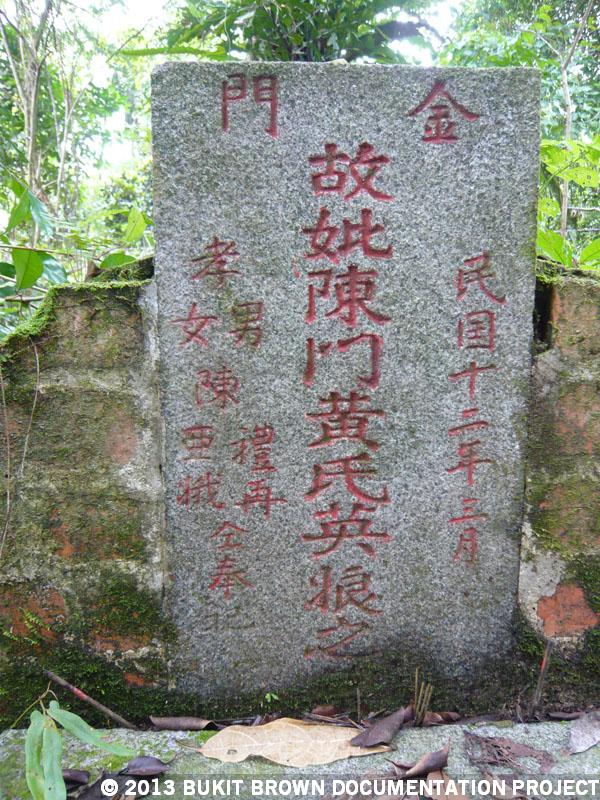 金門
民国十二年三月
故妣陳門黄氏英娘之
孝
男
女
陳
禮再
亞娥
仝奉祀
© 2013 BUKIT BROWN DOCUMENTATION PROJECT